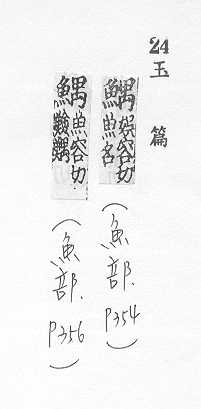 24 玉篇
鰅 娛容切 魚名 (魚部. P354)
鰅 魚容切 (魚部. P356)